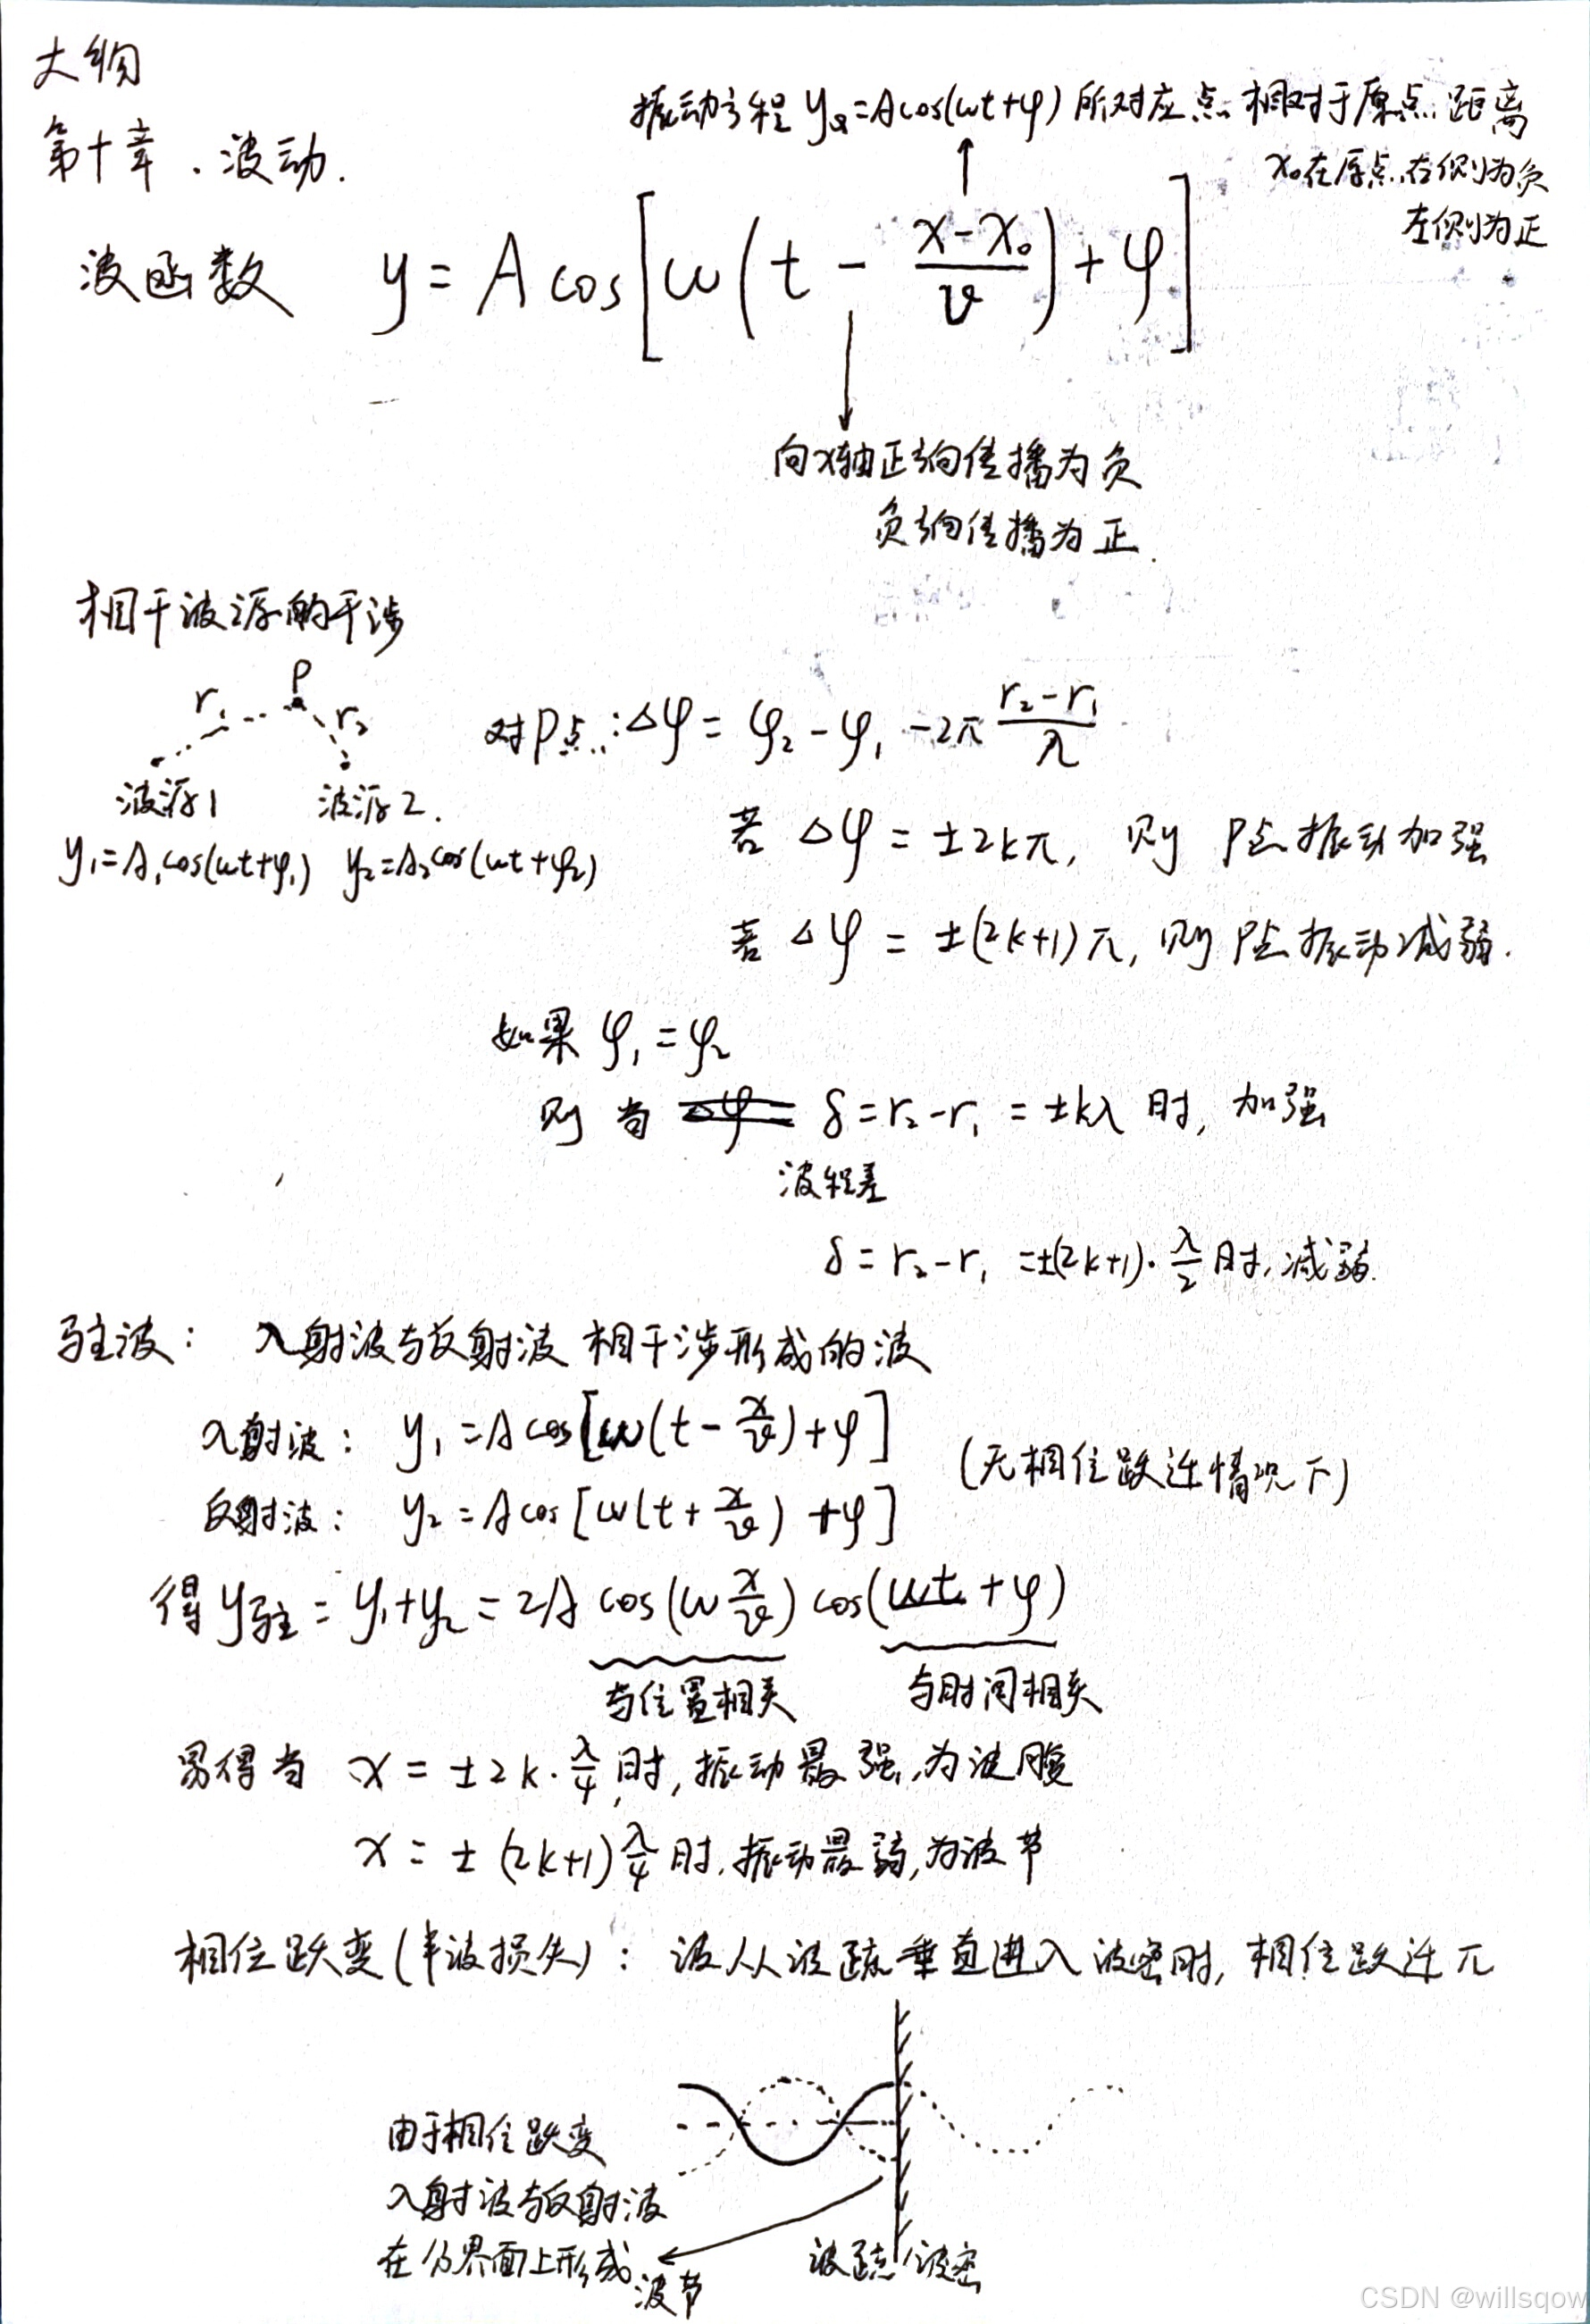 大物
振动方程 y₀=Acos(ωt+φ) 所对应点相对于原点距离
第十章.波动.
x₀在原点右侧为负
左侧为正
波函数 y = A cos[ω(t - (x-x₀)/v) + φ]
向x轴正向传播为负
负向传播为正.
相干波源的干涉
P
r₁ r₂
对P点:Δφ = φ₂ - φ₁ - 2π (r₂-r₁)/λ
波源1 波源2.
y₁=A₁cos(ωt+φ₁) y₂=A₂cos(ωt+φ₂)
若 Δφ = ±2kπ, 则 P点振动加强
若 Δφ = ±(2k+1)π, 则P点振动减弱.
如果 φ₁ = φ₂
则当 δ = r₂-r₁ = ±kλ 时, 加强
波程差
δ = r₂-r₁ =±(2k+1)·λ/2 时,减弱.
驻波: 入射波与反射波相干涉形成的波
入射波: y₁ =Acos[ω(t-x/v)+φ]
(无相位跃迁情况下)
反射波: y₂ =Acos[ω(t+x/v)+φ]
得y驻 = y₁+y₂ = 2A cos(ω x/v) cos(ωt+φ)
与位置相关 与时间相关
易得当 x = ±2k·λ/4 时,振动最强,为波腹
x = ±(2k+1)λ/4 时.振动最弱,为波节
相位跃变(半波损失): 波从波疏垂直进入波密时, 相位跃迁π
由于相位跃变
入射波与反射波
在分界面上形成
波节
波疏 波密
CSDN @willsqow